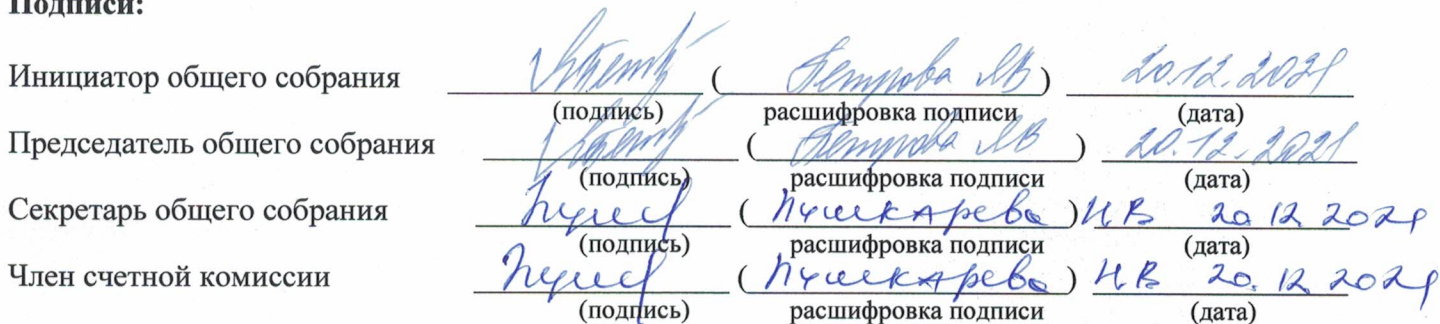 Подписи:
Инициатор общего собрания ( Петрова ЯВ ) 20.12.2021
(подпись) расшифровка подписи (дата)
Председатель общего собрания ( Петрова ЯВ ) 20.12.2021
(подпись) расшифровка подписи (дата)
Секретарь общего собрания ( Пушкарева ) Н.В 20 12 2021
(подпись) расшифровка подписи (дата)
Член счетной комиссии ( Пушкарева ) Н.В 20. 12 2021
(подпись) расшифровка подписи (дата)